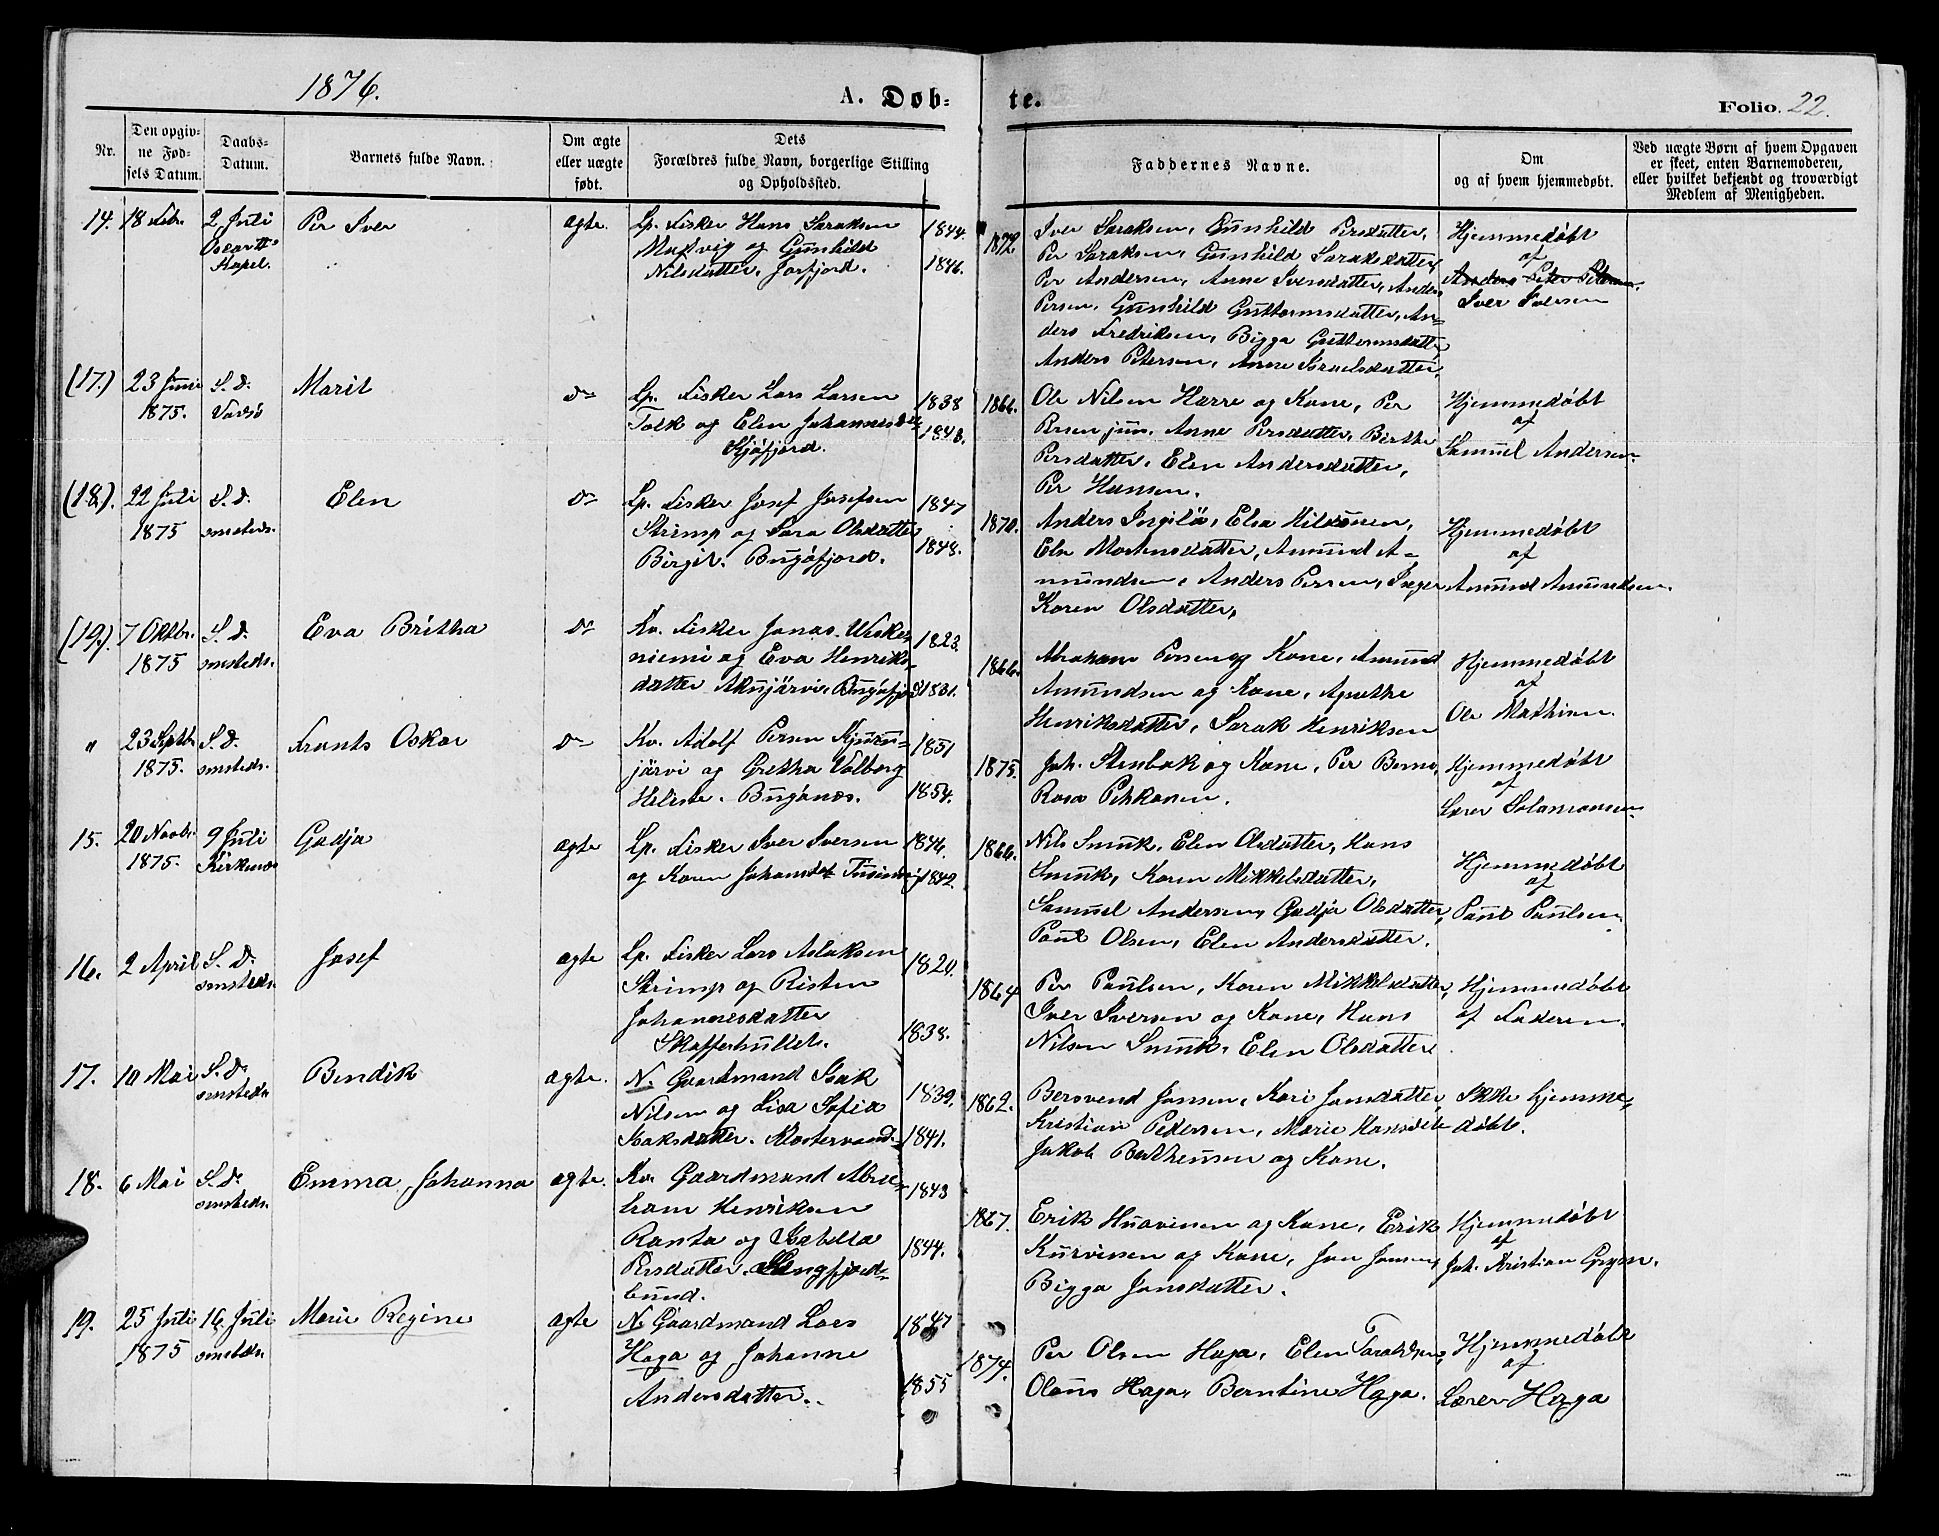 1876.
A. Døb-
te.
Folio. 22.
Nr.
Den opgiv-
ne Fød-
sels Datum.
Daabs-
Datum.
Barnets fulde Navn.
Om ægte
eller uægte
født.
Dets
Forældres fulde Navn, borgerlige Stilling
og Opholdssted.
Faddernes Navne.
Om
og af hvem hjemmedøbt.
Ved uægte Børn af hvem Opgaven
er skeet, enten Barnemoderen,
eller hvilket bekjendt og troværdigt
Medlem af Menigheden.
14. 18 Febr. 2 Juli Per Iver ægte. Lp. Fisker Hans Saraksen 1844.
Oscar II's
Kapel.
og Gunhild
Nilsdatter. Jarfjord. 1846.
1872 Iver Saraksen, Gunhild Persdatter,
Per Saraksen, Gunhild Saraksdatter,
Per Andersen, Anne Iversdatter, Anders
Persen, Gunhild Guttormsdatter, An-
ders Fredriksen, Bigga Guttormsdatt.
Anders Petersen, Anne Israelsdatter,
Hjemmedøbt
af
Anders Peter Petersen
Iver Iversen
(17.) 23 Juni S. d. Marit do Lp. Fisker Lars Larsen 1838
1875. Vadsø Tolk og Elen Johannesdtt. 1843.
Kjøfjord.
1866. Ole Nilsen Harre og Kone, Per
Persen jun. Anne Persdatter, Birthe
Persdatter, Elen Andersdatter,
Per Hansen.
Hjemmedøbt
af
Samuel Andersen.
(18.) 22 Juli S. d. Elen do Lp. Fisker Josef Josefsen 1847
1875 smsteds. Skrimp og Sara Olsdatter 1848.
Birgit. Bugøfjord.
1870. Anders Ingilä, Elsa
Else Mortensdatter, Amund A-
mundsen, Anders Persen, Inger
Karen Olsdatter,
Hjemmedøbt
af
Amund Amundsen.
(19.) 7 Oktbr. S. d. Eva Britha do Kv. Fisker Jonas Uske- 1823.
1875 smsteds. niemi og Eva Henriks-
datter Akujärvi, Bugøfjord 1831.
1866. Abraham Persen og Kone, Amund
Amundsen og Kone, Agnethe
Henriksdatter, Sarak Henriksen
Hjemmedøbt
af
Ole Mathisen.
" 23 Septbr. S. d. Frants Oskar do Kv. Adolf Persen 1851
1875. smsteds. järvi og Gretha Valborg
Helene. Bugønæs. 1854.
1875. Joh. Stenbak og Kone, Per
Rosa Pekkanen.
Hjemmedøbt
af
Lærer Salamonsen.
15. 20 Novbr. 9 Juli Gadja ægte Lp. Fisker Iver Iversen 1846.
1875. Kirkenæs og Karen Johansdt. 1842.
1866. Nils Smuk, Elen Olsdatter, Hans
Smuk, Karen Mikkelsdatter,
Samuel Andersen, Gadja Olsdatter,
Paul Olsen, Elen Andersdatter.
Hjemmedøbt
af
Paul Paulsen.
16. 2 April S. d. Josef ægte Lp. Fisker Lars Aslaksen 1820.
smsteds. Skrimp og Risten
Johannesdatter 1838.
Skafferhullet.
1864 Per Paulsen, Karen Mikkelsdatter,
Iver Iversen og Kone, Hans
Nilsen Smuk, Elen Olsdatter.
Hjemmedøbt
af Faderen.
17. 10 Mai S. d. Bendik ægte. N. Gaardmand Isak 1839.
smsteds. Nilsen og Lisa Sofia
Isaksdatter. Klostervand. 1841.
1862. Bersvend Jonsen, Kari Jonsdatter,
Kristian Pedersen, Marie Hansdtt.
Jakob og Kone.
Ikke hjemme-
døbt.
18. 6 Mai S. d. Emma Johanna ægte. Kv. Gaardmand Abra- 1843
smsteds. ham Henriksen
Ranta og Isabella 1844.
Persdatter. Langfjord-
bund.
1867. Erik Huovinen og Kone, Erik
Kurvinen og Kone, Jon Jonsen,
Bigga Jonsdatter.
Hjemmedøbt
af
Joh. Kristian Gryen.
19. 25 Juli 16 Juli Marie Regine ægte N. Gaardmand Lars 1847
1875 smsteds. Haga og Johanne
Andersdatter. 1855
1874. Per Olsen Haga, Elen Taraldsen,
Olaus Haga, Berntine Haga.
Hjemmedøbt
af
Lærer Haga